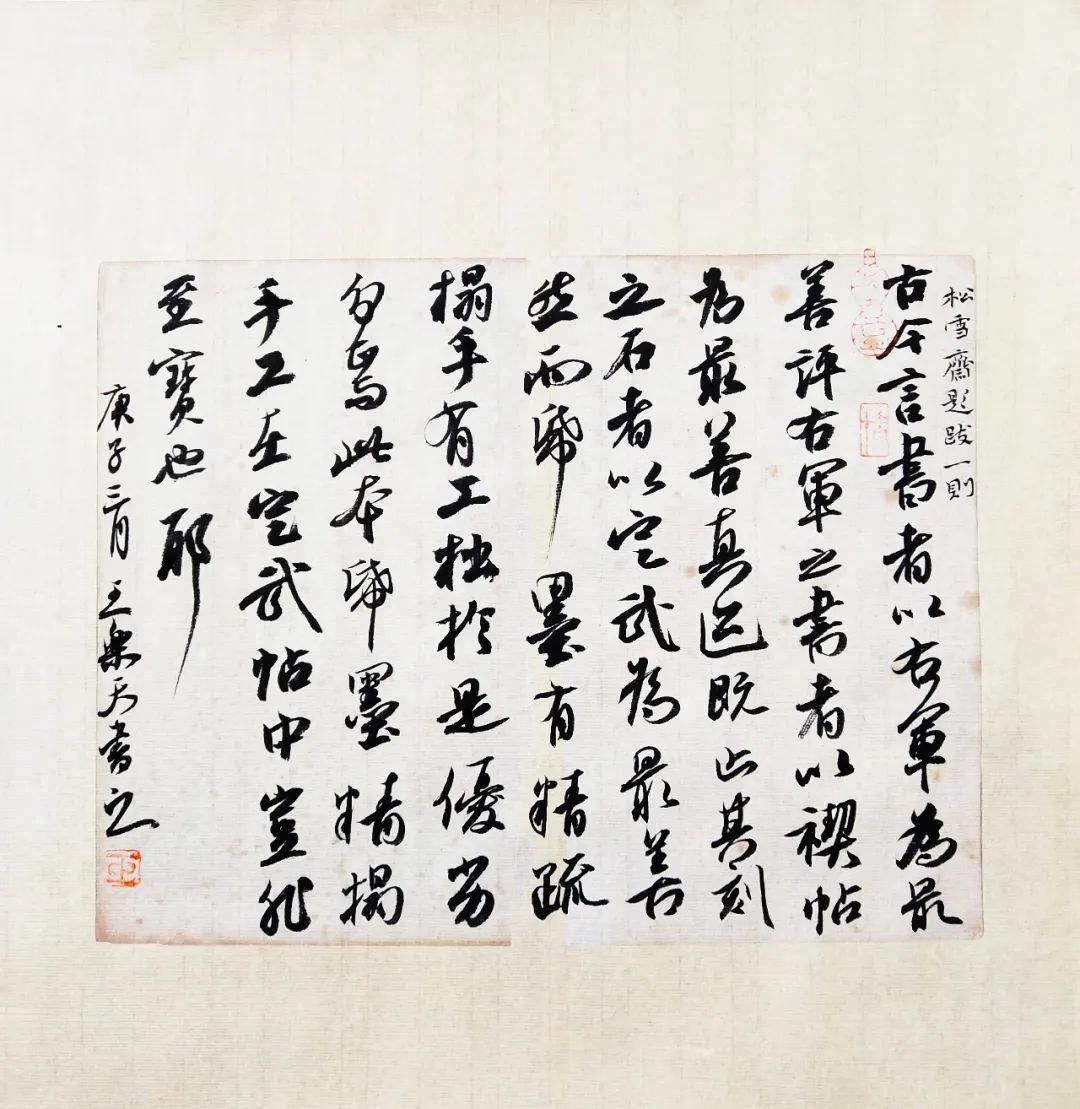 松雪齋題跋一則
古今言書者以右軍為最
善評右軍之書者以禊帖
為最善真迹既亡其刻
之石者以定武為最善
然而帋墨有精疏
榻手有工拙於是優劣
分焉此本帋墨精榻
手工在定武帖中豈非
至寶也耶
庚子三月王樂天書之